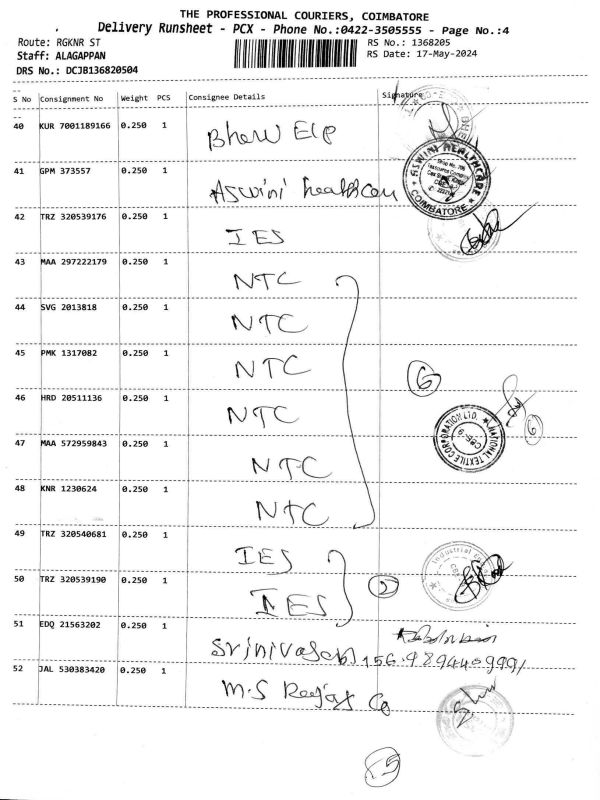 THE PROFESSIONAL COURIERS, COIMBATORE
Delivery Runsheet - PCX - Phone No.:0422-3505555 - Page No.:4
Route: RGKNR ST
Staff: ALAGAPPAN
DRS No.: DCJB136820504
RS No.: 1368205
RS Date: 17-May-2024
S No Consignment No Weight PCS Consignee Details Signature
40 KUR 7001189166 0.250 1
41 GPM 373557 0.250 1 Aswini healthcare
ASWINI HEALTHCARE
COIMBATORE
42 TRZ 320539176 0.250 1 IES
43 MAA 297222179 0.250 1 NTC
44 SVG 2013818 0.250 1 NTC
45 PMK 1317082 0.250 1 NTC
6
46 HRD 20511136 0.250 1 NTC
6
NATIONAL TEXTILE CORPORATION LTD.
CBE-9
47 MAA 572959843 0.250 1 NTC
48 KNR 1230624 0.250 1 NTC
49 TRZ 320540681 0.250 1 IES
Industrial
50 TRZ 320539190 0.250 1 IES
2
51 EDQ 21563202 0.250 1 Srinivasan
52 JAL 530383420 0.250 1 M.S